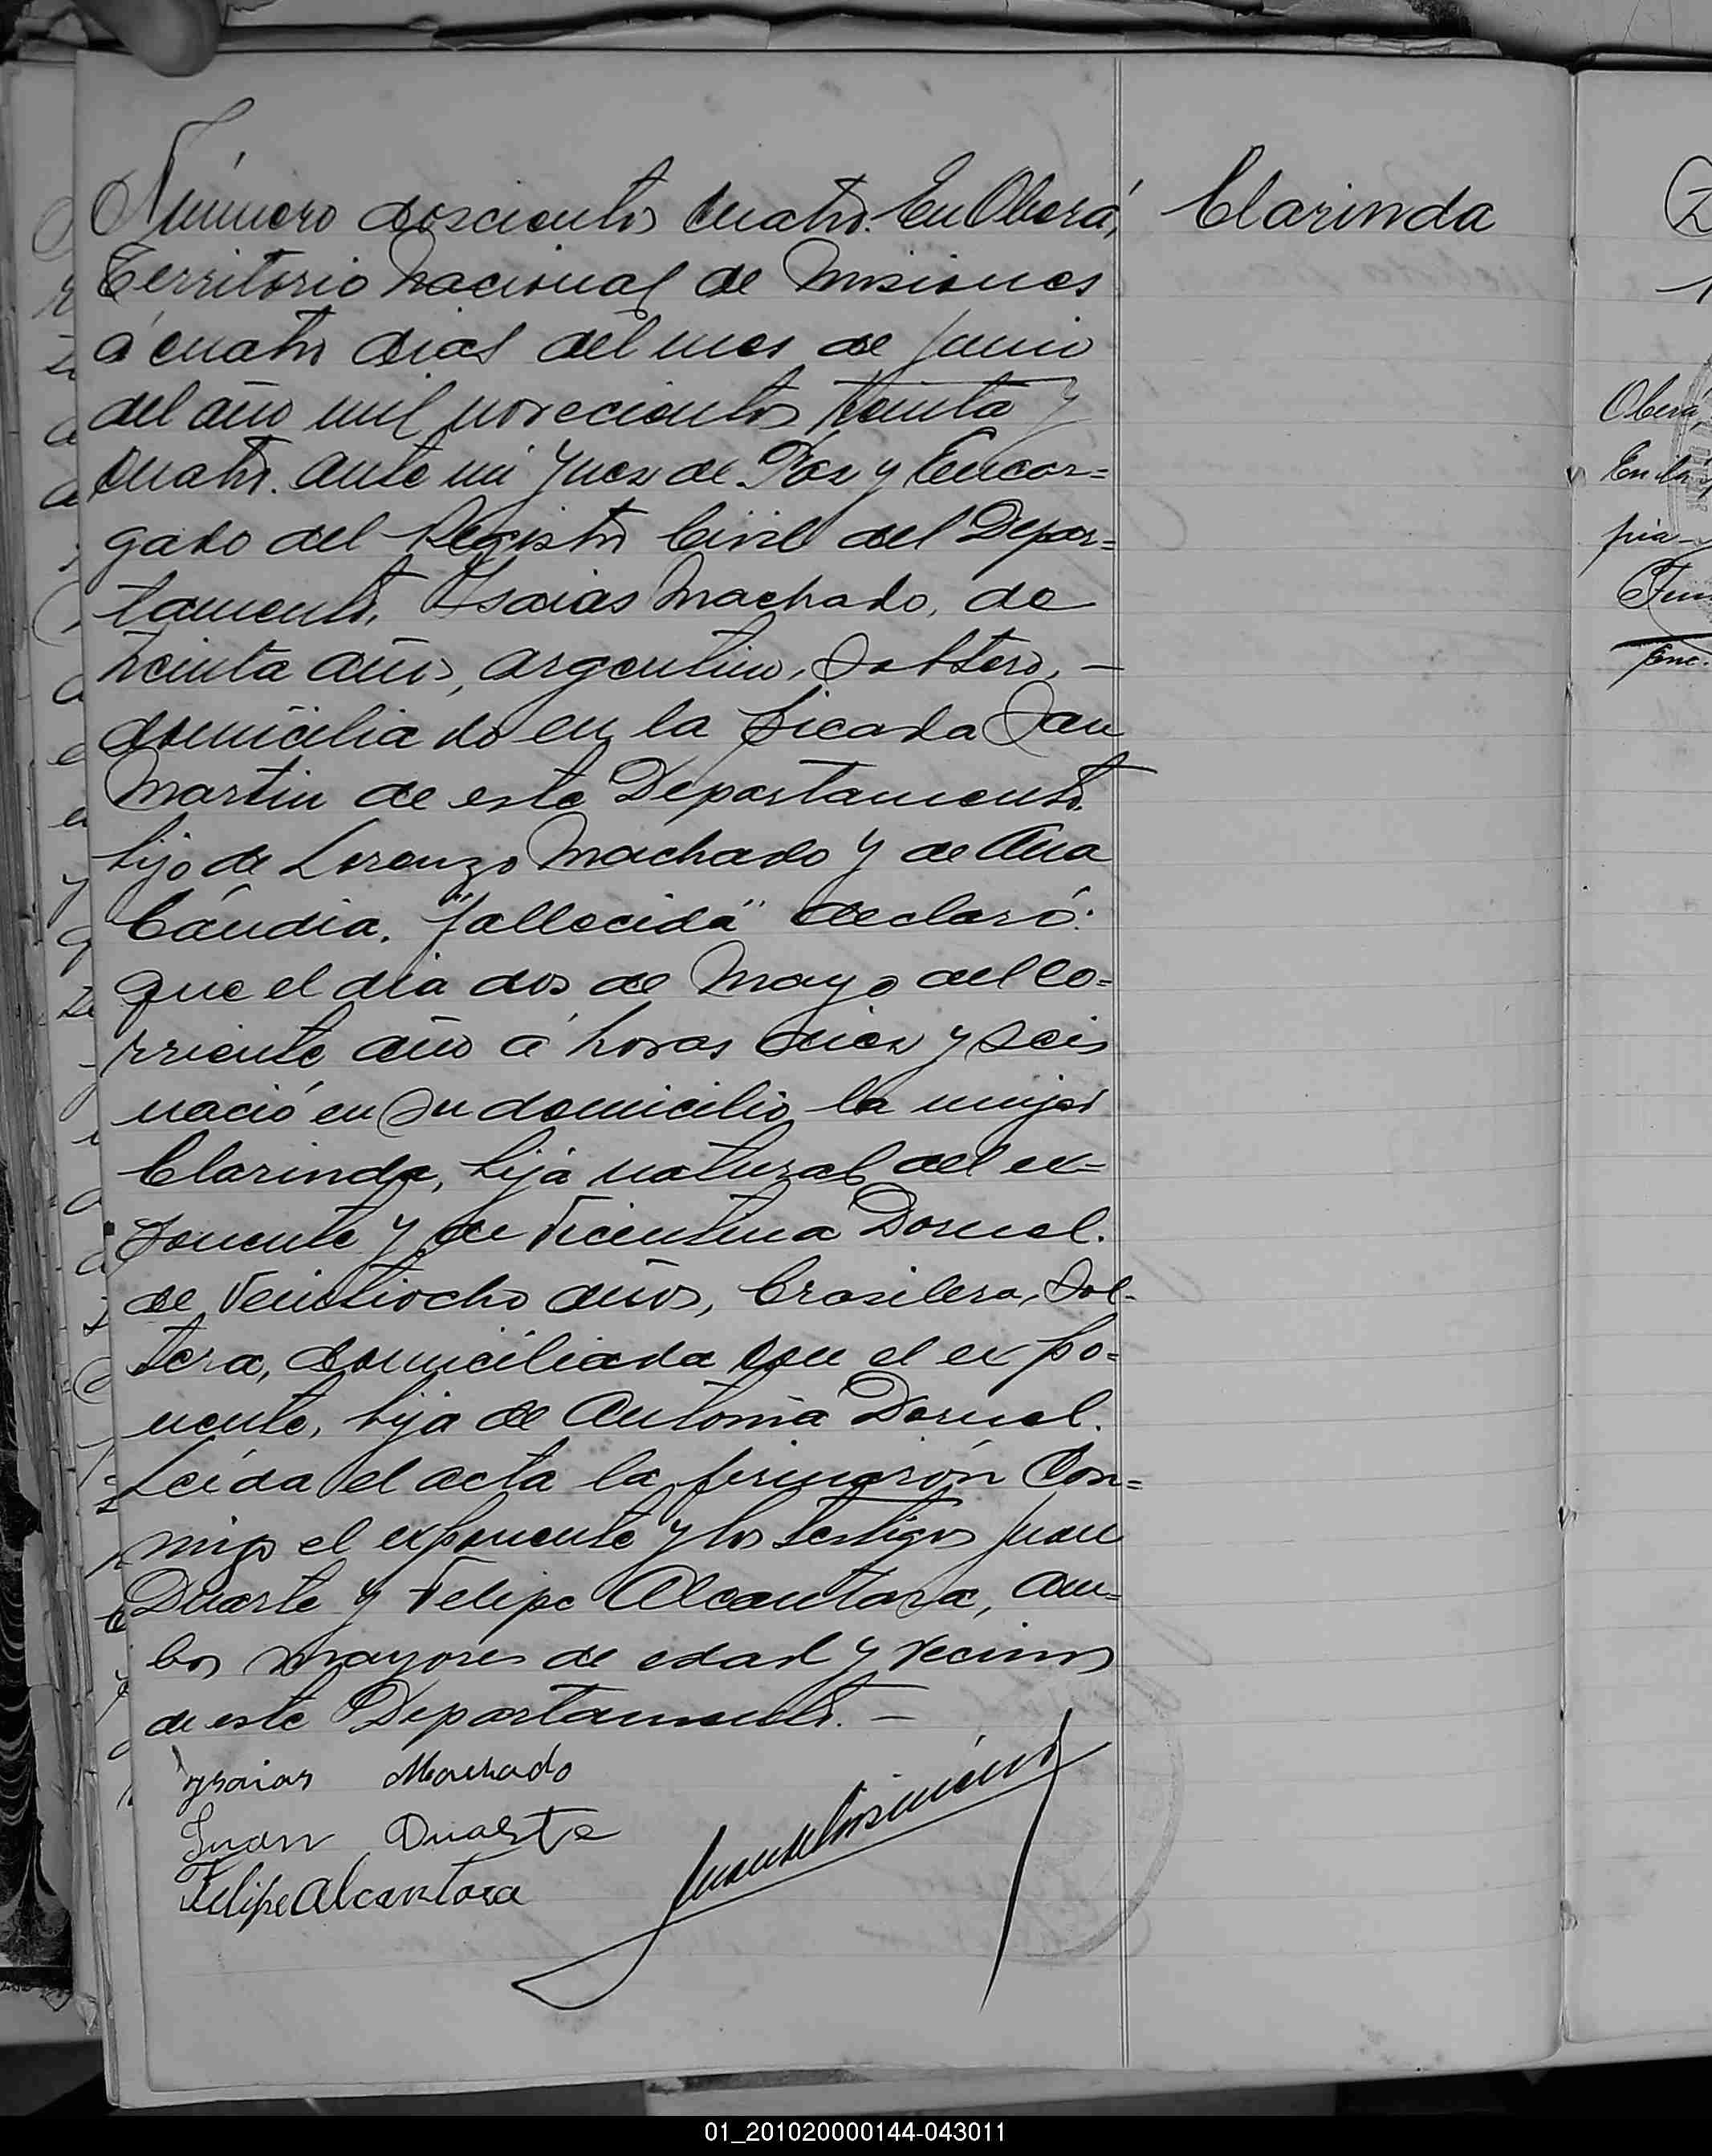 Número doscientos cuatro. En Oberá,
Territorio Nacional de Misiones
á cuatro dias del mes de Junio
del año mil novecientos treinta y
cuatro. ante mi Juez de Paz y Encar=
gado del Registro Civil del Depar=
tamento, Isaias Machado, de
treinta años, argentino, Soltero, —
domiciliado en la picada San
Martin de este Departamento.
hijo de Lorenzo Machado y de Ana
Cándia. "fallecida" declaró:
que el dia dos de Mayo del co=
rriente año á horas diez y seis
nació en su domicilio la mujer
Clarinda, hija natural del ex=
ponente y de Vicentina Dornel.
de Veintiocho años, brasilera, Sol-
tera, domiciliada con el expo=
nente, hija de Antonia Dornel.
Leida el acta la firmarón Con=
migo el exponente y los testigos Juan
Duarte y Felipe Alcantara, am=
bos mayores de edad y vecinos
de este Departamento. —
Ysaias Machado
Juan Duarte
Felipe Alcantara
Clarinda
Oberá,
En la
01_201020000144-043011